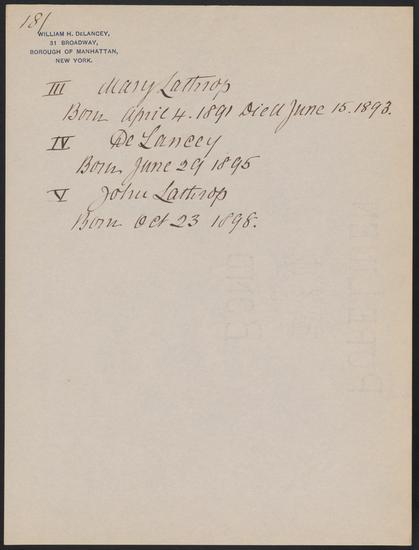 181
WILLIAM H. DELANCEY,
31 BROADWAY,
BOROUGH OF MANHATTAN,
NEW YORK.
III Mary Lathrop
Born April 4. 1891 Died June 15. 1893.
IV De Lancey
Born June 29 1895
V John Lathrop
Born Oct 23 1898.